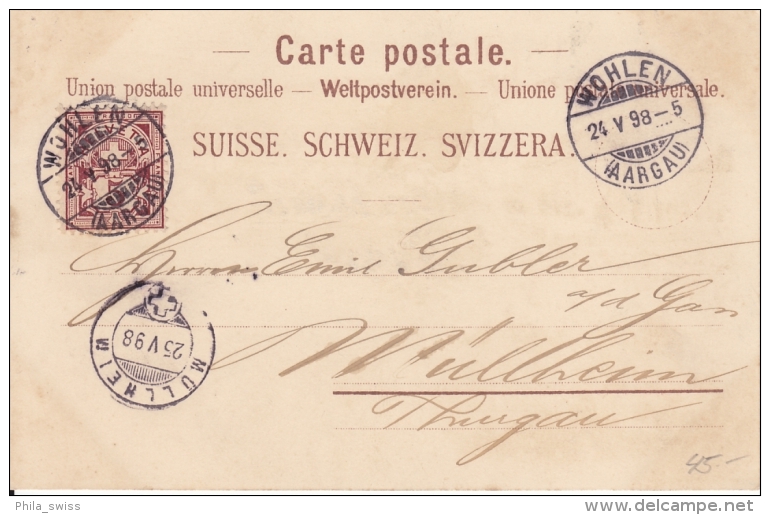 — Carte postale. —
Union postale universelle — Weltpostverein. — Unione postale universale.
SUISSE. SCHWEIZ. SVIZZERA.
WOHLEN
24 V 98–5
(AARGAU)
WOHLEN
24 V 98–
(AARGAU)
Herrn Emil Gubler
a/d
Müllheim
Thurgau
25 V 98
MÜLLHEIM
45.–
Phila_swiss
delcampe.net